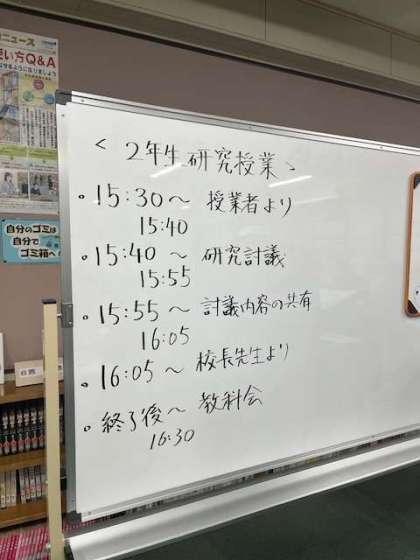 ニュース
使い方Q&A
自分のゴミは
自分で
ゴミ箱へ
＜２年生 研究授業＞
・15:30〜 授業者より
15:40
・15:40〜 研究討議
15:55
・15:55〜 討議内容の共有
16:05
・16:05〜 校長先生より
・終了後〜 教科会
16:30